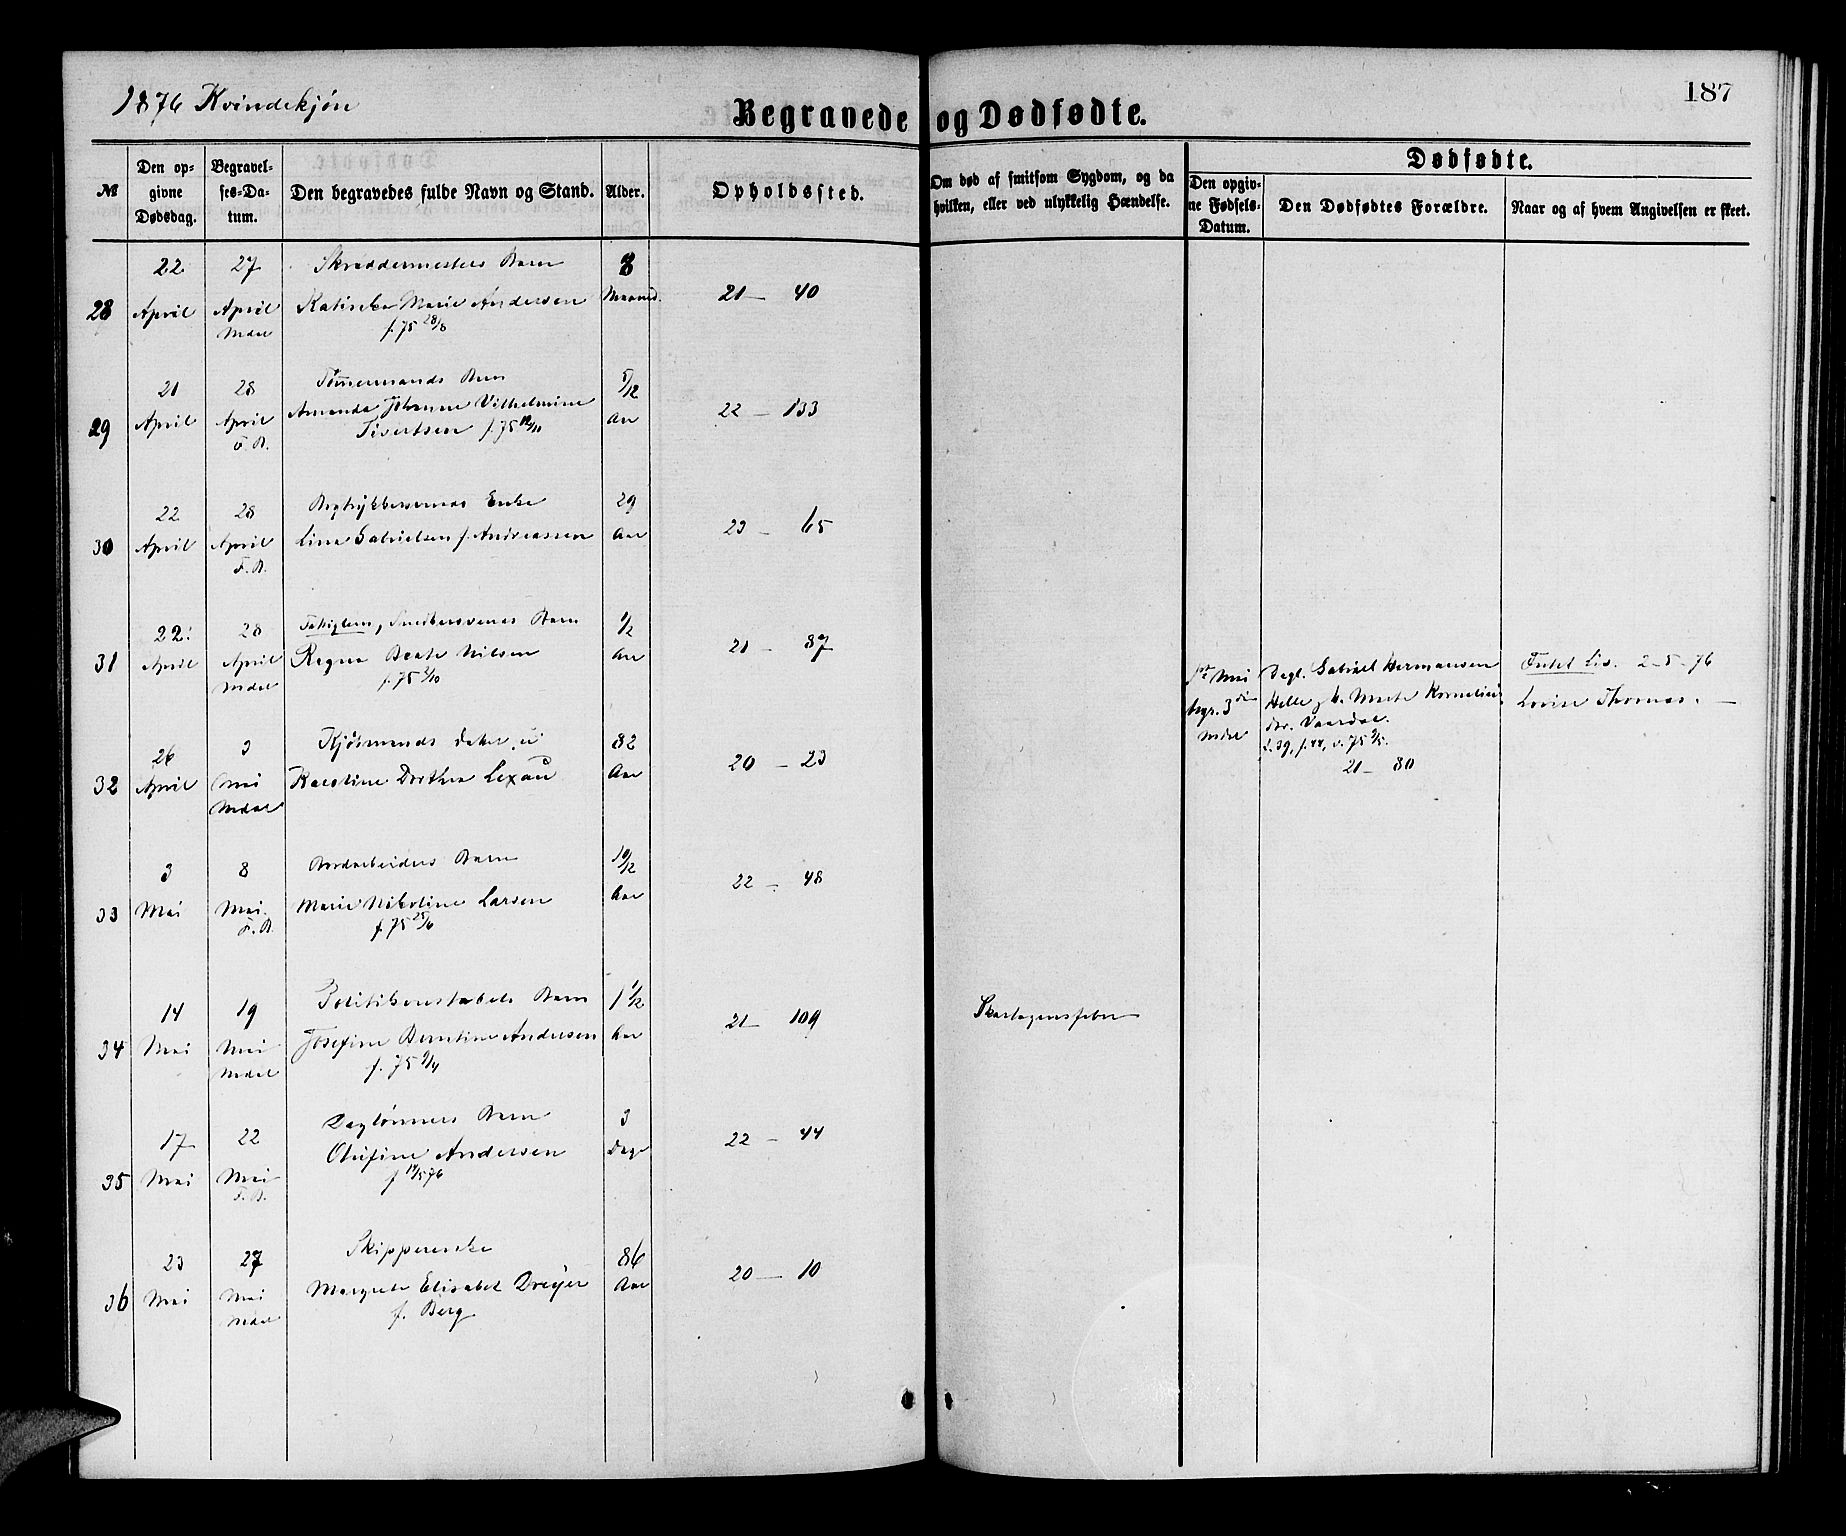 1876 Kvindekjøn
187
Begravede og Dødfødte.
Dødfødte.
№
Den opgivne Dødsdag.
Begravelses-Datum.
Den begravedes fulde Navn og Stand.
Alder.
Opholdssted.
Om død af smitsom Sygdom, og da hvilken, eller ved ulykkelig Hændelse.
Den opgivne Fødsels-Datum.
Den Dødfødtes Forældre.
Naar og af hvem Angivelsen er skeet.
22 27 Skræddermesters Barn 8
28 April April Marie Andersen Maaned. 21 – 40
Ndal f. 75 28/8
21 28 Tømmermands Barn 5/12
29 April April Amanda Johanne Vilhelmine Aar 22 – 133
F. B. Sivertsen f. 75 12/11
22 28 Enke 29
30 April April Lina Gabrielsen f. Andreassen Aar 23 – 65
F. B.
22. 28 Smedsvenes Barn 1/2
31 April April Regna Beate Nilsen Aar 21 – 87
Ndal f. 75 2/10
1ste Mai Dagl. Gabriel Hermansen Intet Liv. 2–5–76
begr. 3die Helle, h. Marte Kornelie Lovise Thomas. –
Ndal Vaardal.
f. 39, f. 44, v. 75 2/5.
21 – 80
26 3 Kjøbmands datter, u 82
32 April Mai Karoline Dorthea Lexau Aar 20 – 23
Ndal
3 8 Barn 10/12
33 Mai Mai Marie Nikoline Larsen Aar 22 – 48
F. B. f. 75 25/6
14 19 Politikonstabels Barn 1 1/12
34 Mai Mai Josefine Berntine Andersen Aar 21 – 109 Skarlagensfeber
Ndal f. 75 9/4
17 22 Daglønners Barn 3
35 Mai Mai Olufine Andersen Dage 22 – 44
F. B. f 14/5 76
23 27 Skipperenke 86
36 Mai Mai Margrete Elisabet Dreyer Aar 20 – 10
Ndal f. Berg